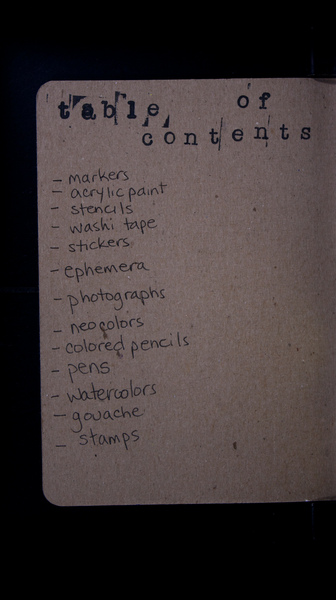 table of
contents
- markers
- acrylic paint
- stencils
- washi tape
- stickers
- ephemera
- photographs
- neocolors
- colored pencils
- pens
- watercolors
- gouache
- stamps